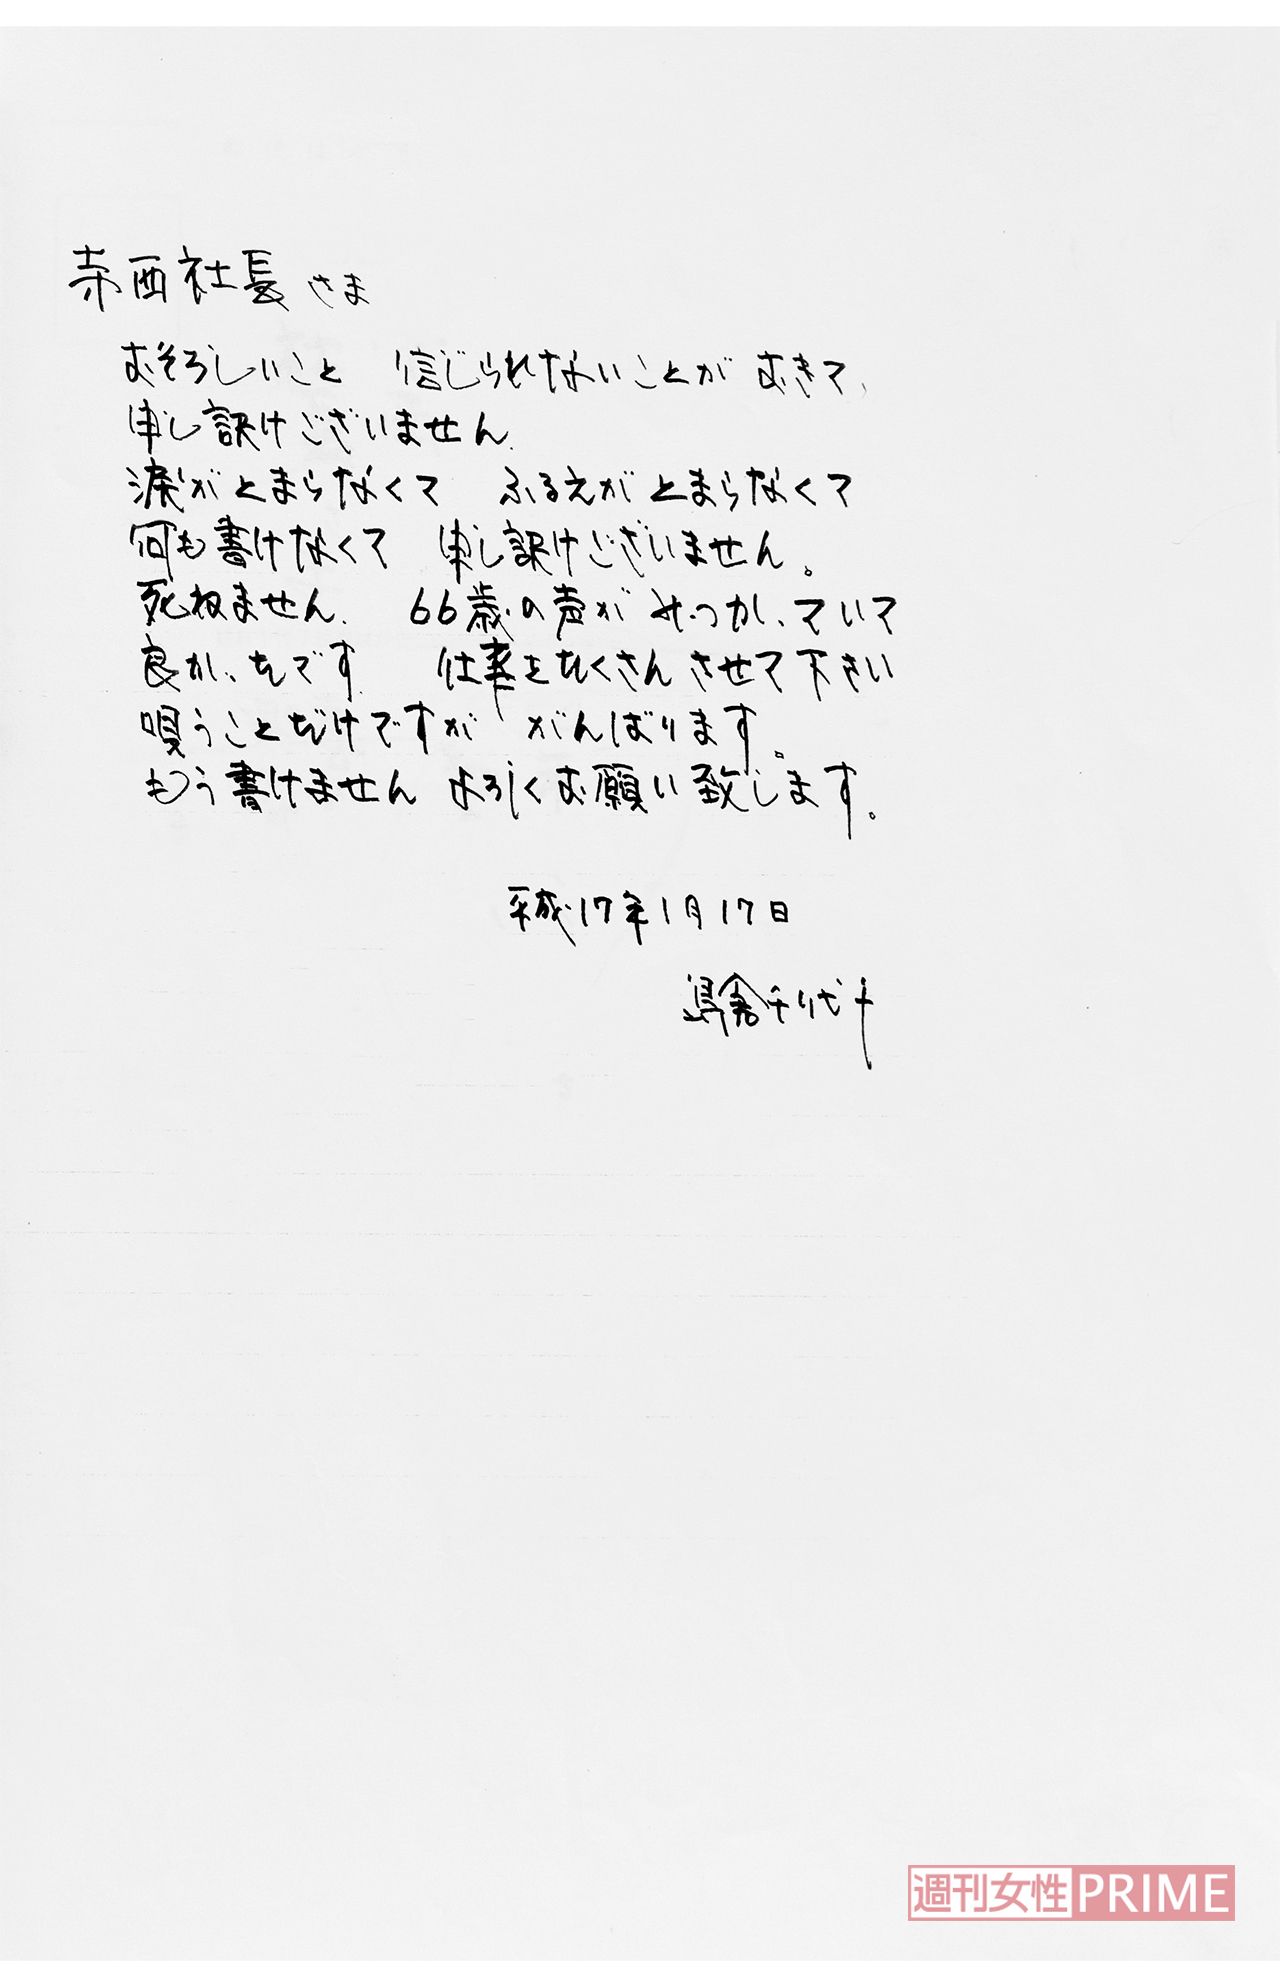 寺西社長さま
おそろしいこと 信じられないことが おきて、
申し訳けございません.
涙がとまらなくて ふるえがとまらなくて
何も書けなくて 申し訳けございません。
死ねません. 66歳の声が みつかっていて
良かったです 仕事をたくさん させて下さい
唄うことだけですが がんばります。
もう書けません よろしくお願い致します。
平成17年1月17日
島倉千代子
週刊女性PRIME